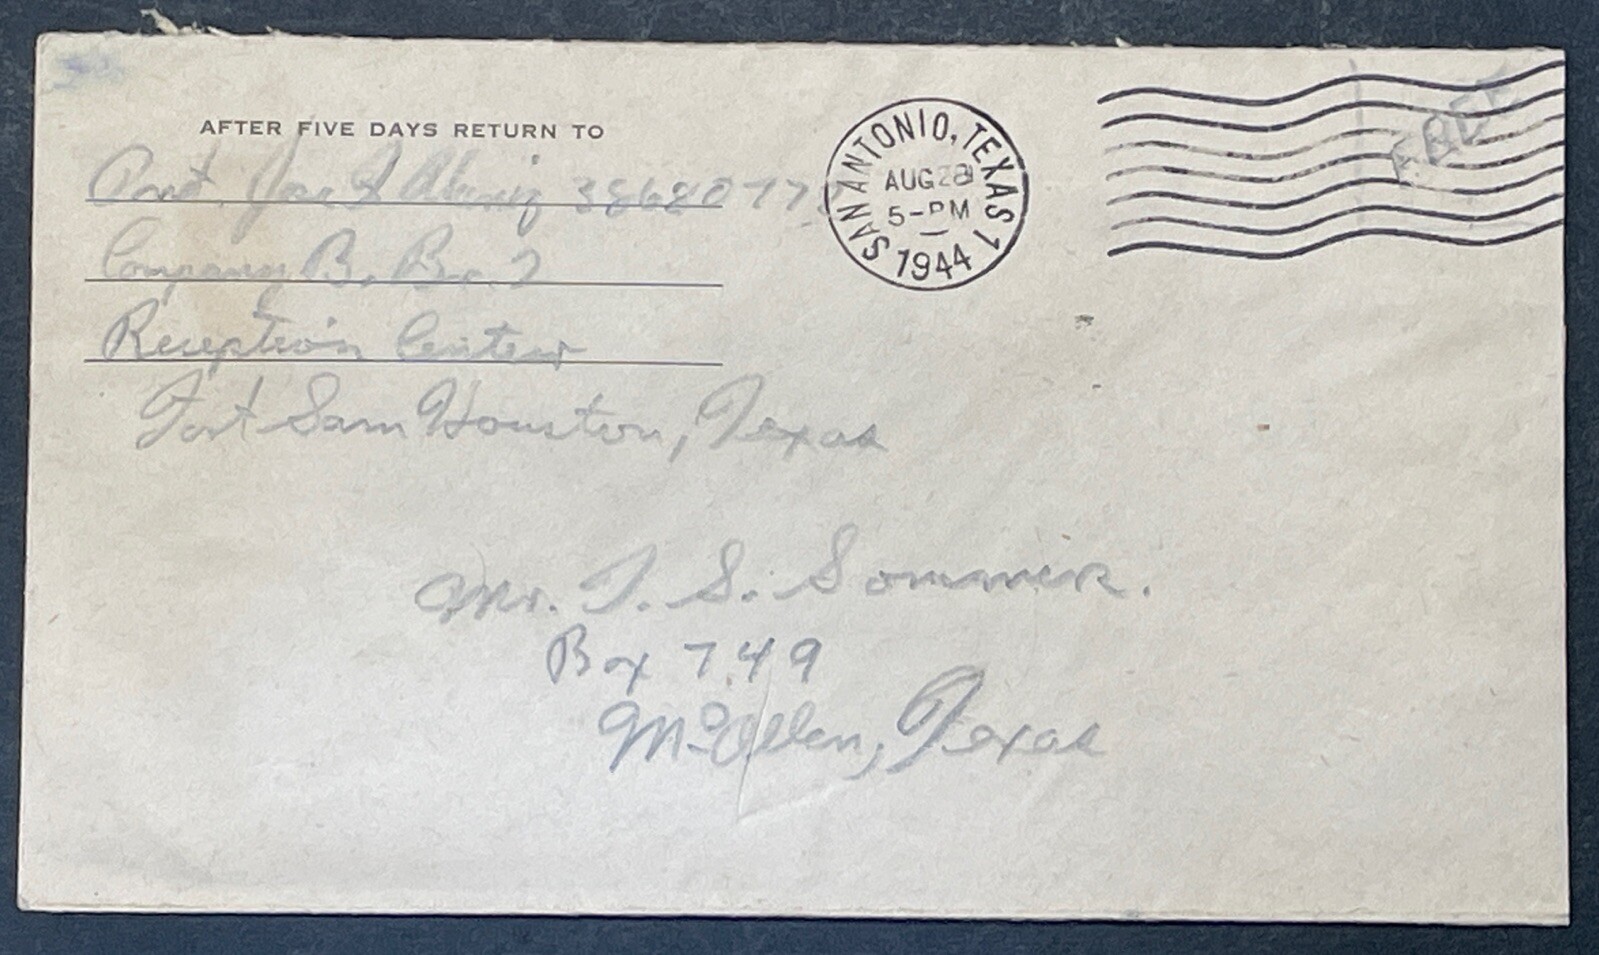 AFTER FIVE DAYS RETURN TO
Pvt. Joe
Company B.
Reception Center
Fort Sam Houston, Texas
SAN ANTONIO, TEXAS 1
AUG 28
5-PM
1944
FREE
Mr. T. S. Sommers.
Box 749
McAllen, Texas